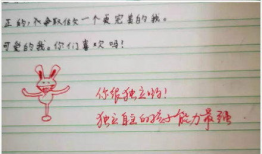 正的,我争取做一个更完美的我。
可爱的我。你们喜欢吗!
你很独立哟!
独立自主的孩子能力最强